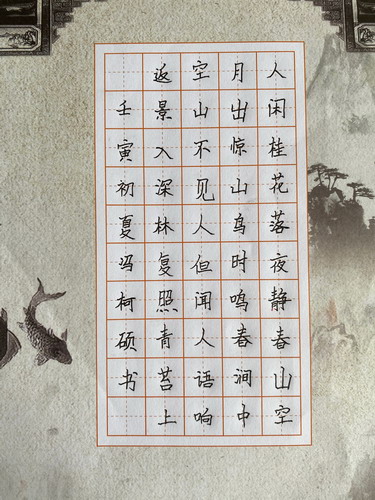 人闲桂花落夜静春山空
月出惊山鸟时鸣春涧中
空山不见人但闻人语响
返景入深林复照青苔上
壬寅初夏冯柯硕书